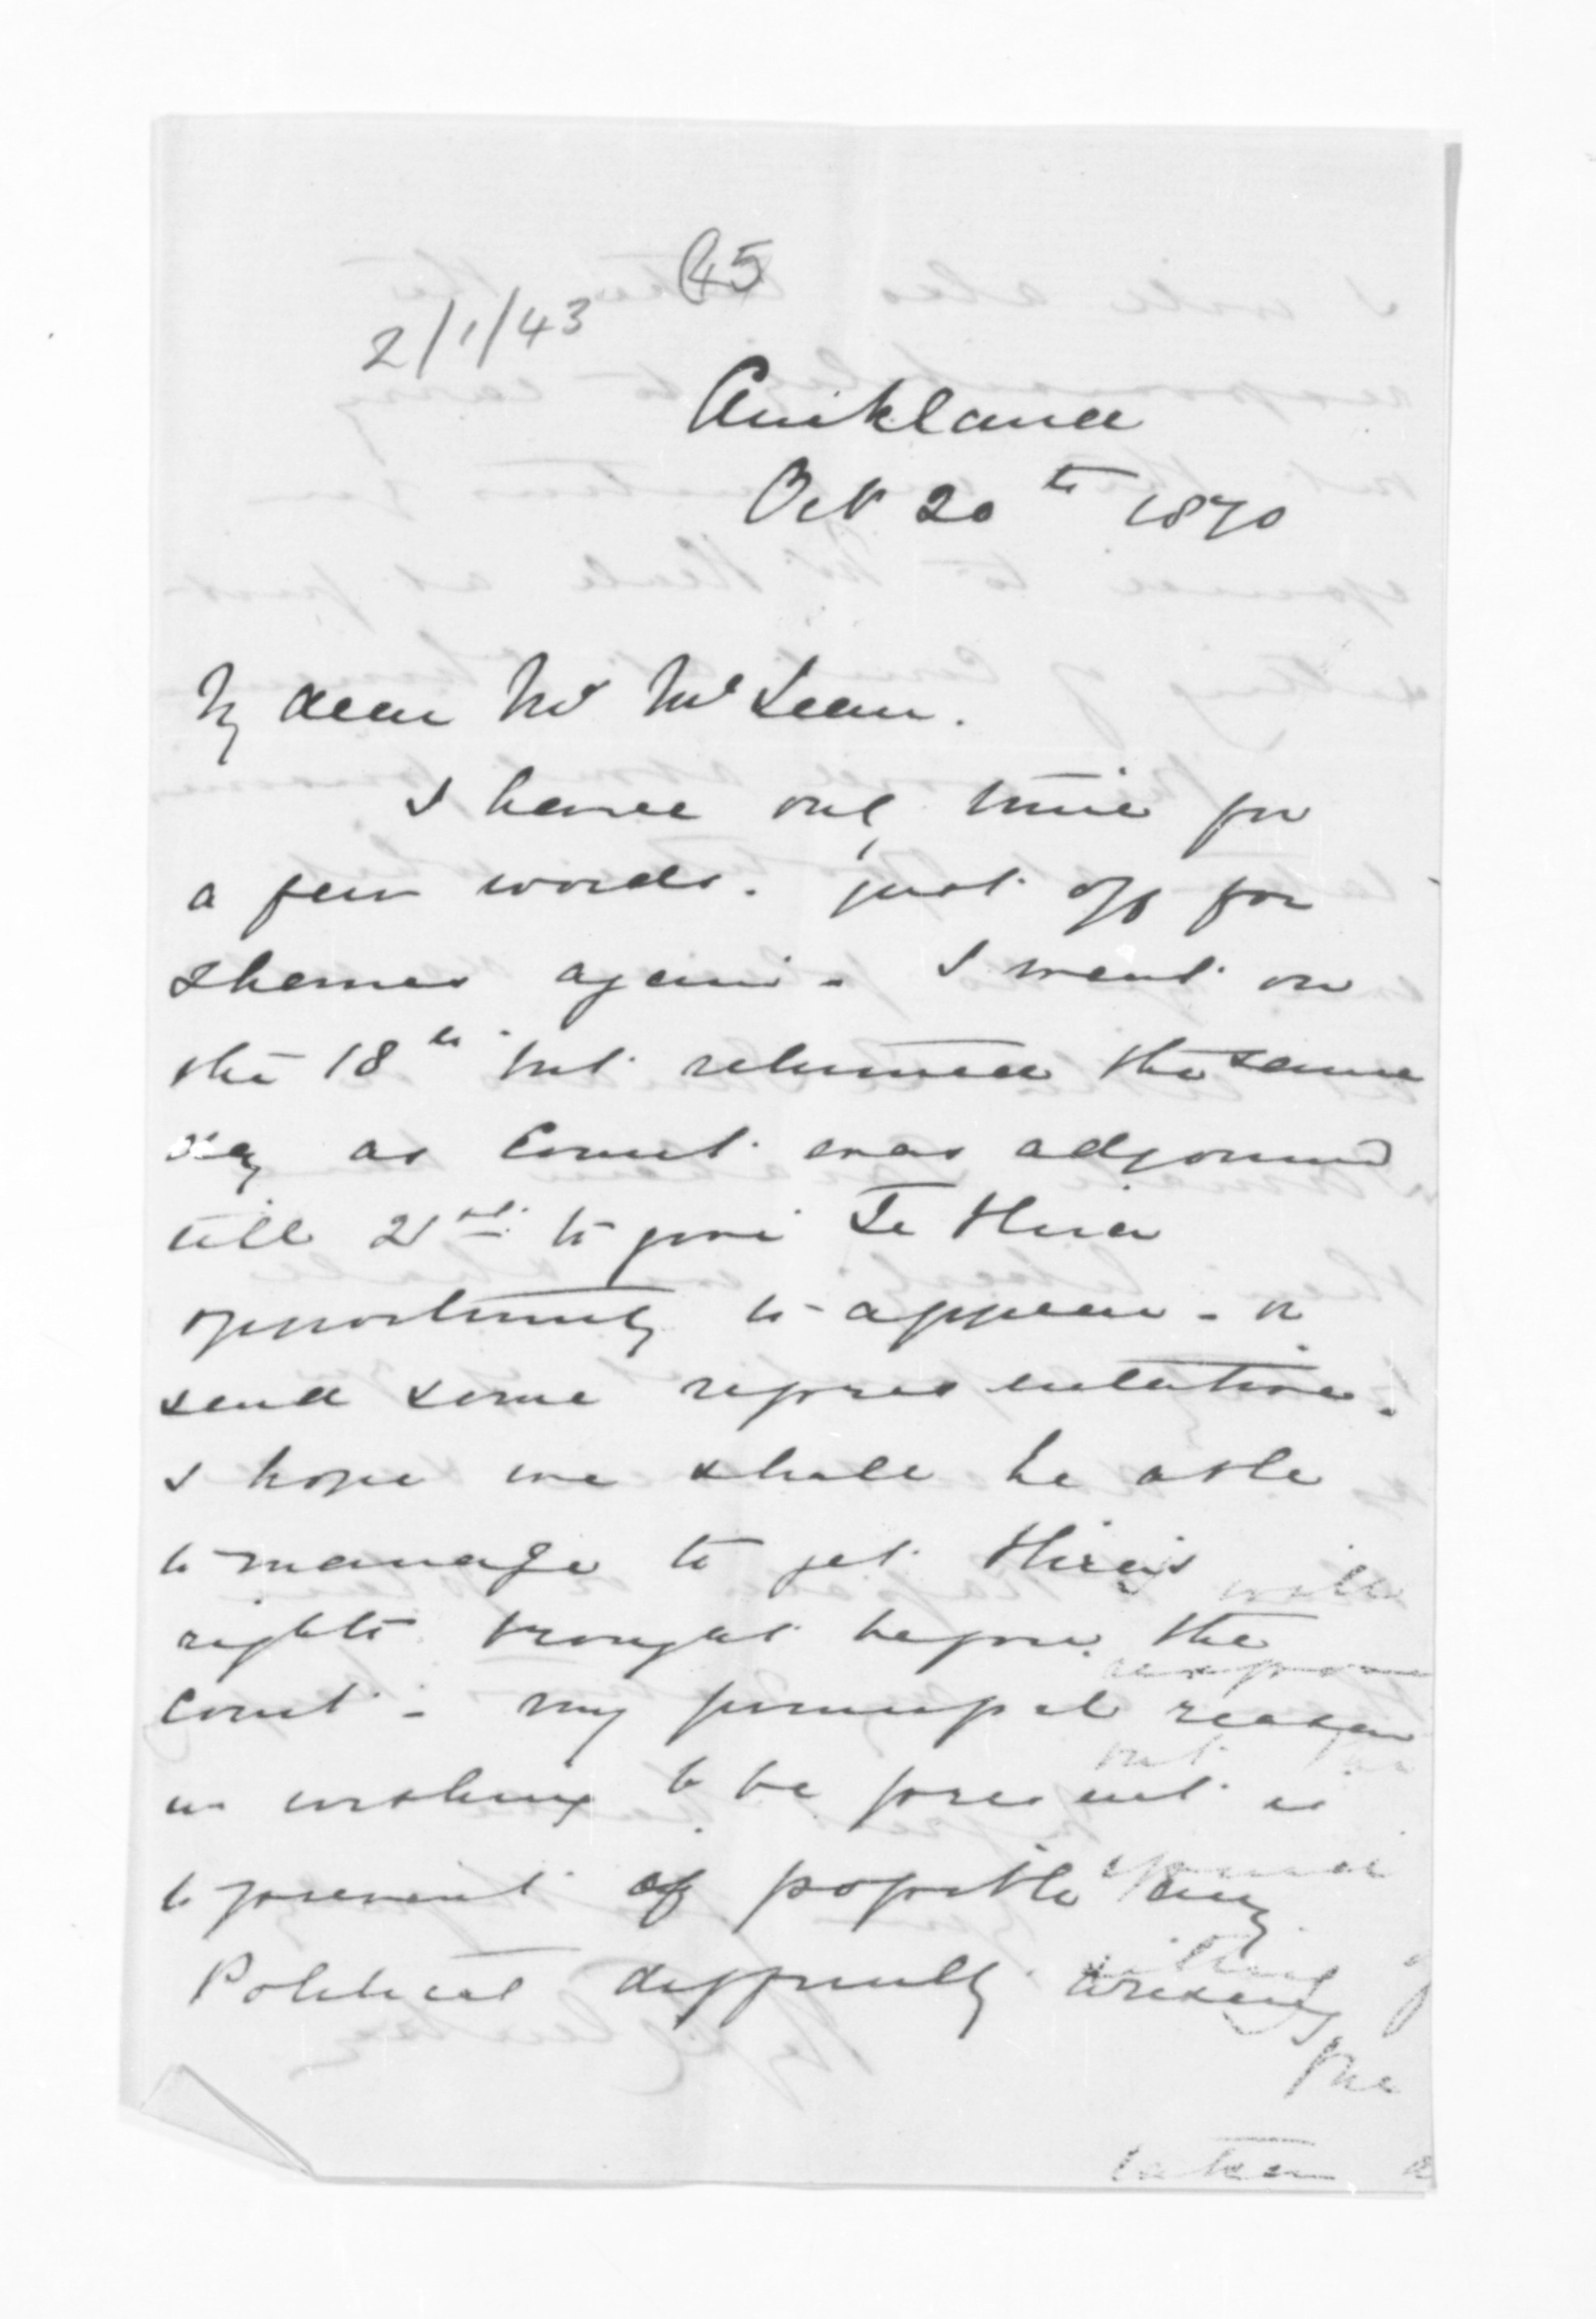 45
2/1/43
Auckland
Oct 20th 1870
My dear Mr McLean.
I have only time for
a few words. just off for
Thames again - I went on
the 18th but returned the same
day as Court was adjourned
till 21st to give Te Hira
opportunity to appear - or
send some representative.
I hope we shall be able
to manage to get Hira's
rights brought before the
Court - my principal reason
in wishing to be present is
to prevent if possible any
Political difficulty arising